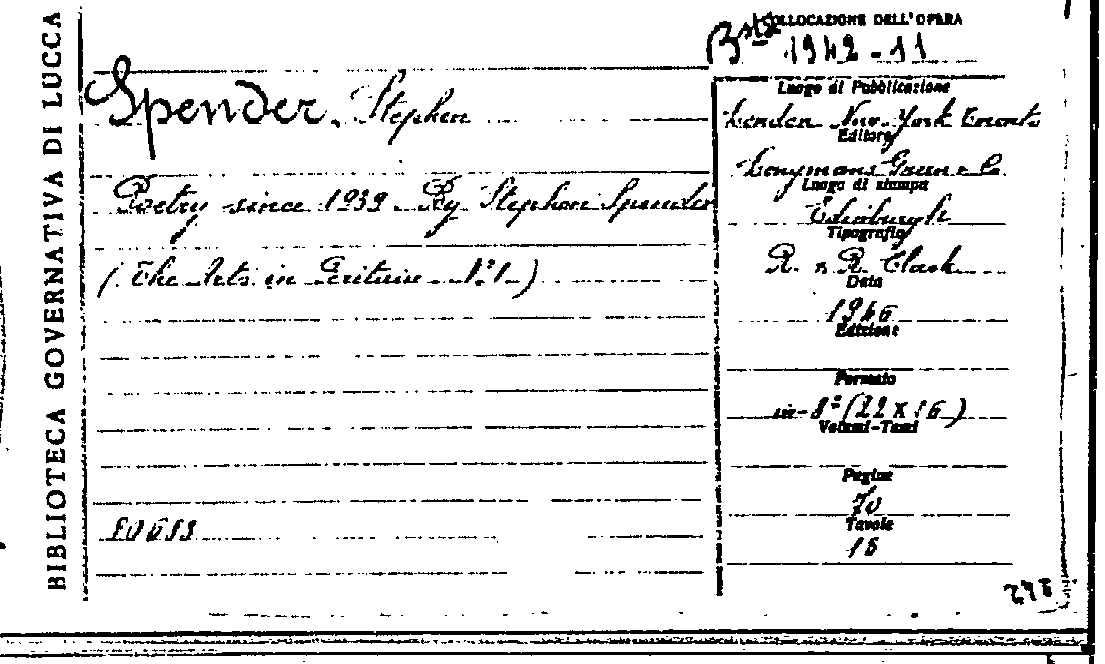 BIBLIOTECA GOVERNATIVA DI LUCCA
COLLOCAZIONE DELL'OPERA
Bsta 1942-11
Spender, Stephen
Poetry since 1939. By Stephen Spender
(The Arts in Britain N.º 1.)
20633
Luogo di Pubblicazione
London New-York Toronto
Editore
Longmans Green & Co.
Luogo di stampa
Edinburgh
Tipografia
R. & R. Clark
Data
1946
Edizione
Formato
in-8º (22 X 16)
Volumi-Tomi
Pagine
70
Tavole
16